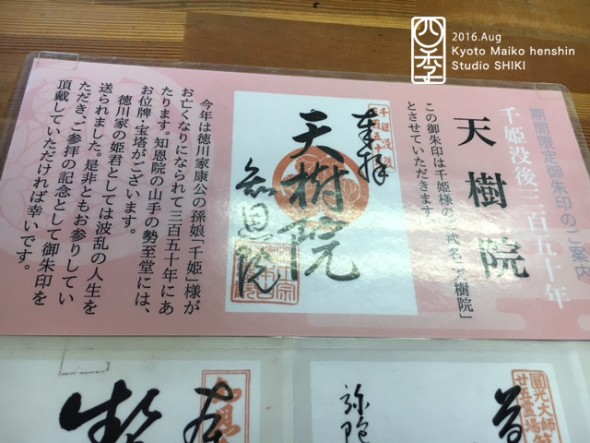 四季
2016.Aug
Kyoto Maiko henshin
Studio SHIKI
期間限定御朱印のご案内
千姫没後三百五十年
天樹院
この御朱印は千姫様のご戒名「天樹院」
とさせていただきます。
奉拝
天樹院
知恩院
今年は徳川家康公の孫娘「千姫」様が
お亡くなりになられて三百五十年にあ
たります。知恩院の山手の勢至堂には、
お位牌・宝塔がございます。
徳川家の姫君としては波乱の人生を
送られました。是非ともお参りしてい
ただき、ご参拝の記念として御朱印を
頂戴していただければ幸いです。
圓光大師
廿五霊場
弥陀